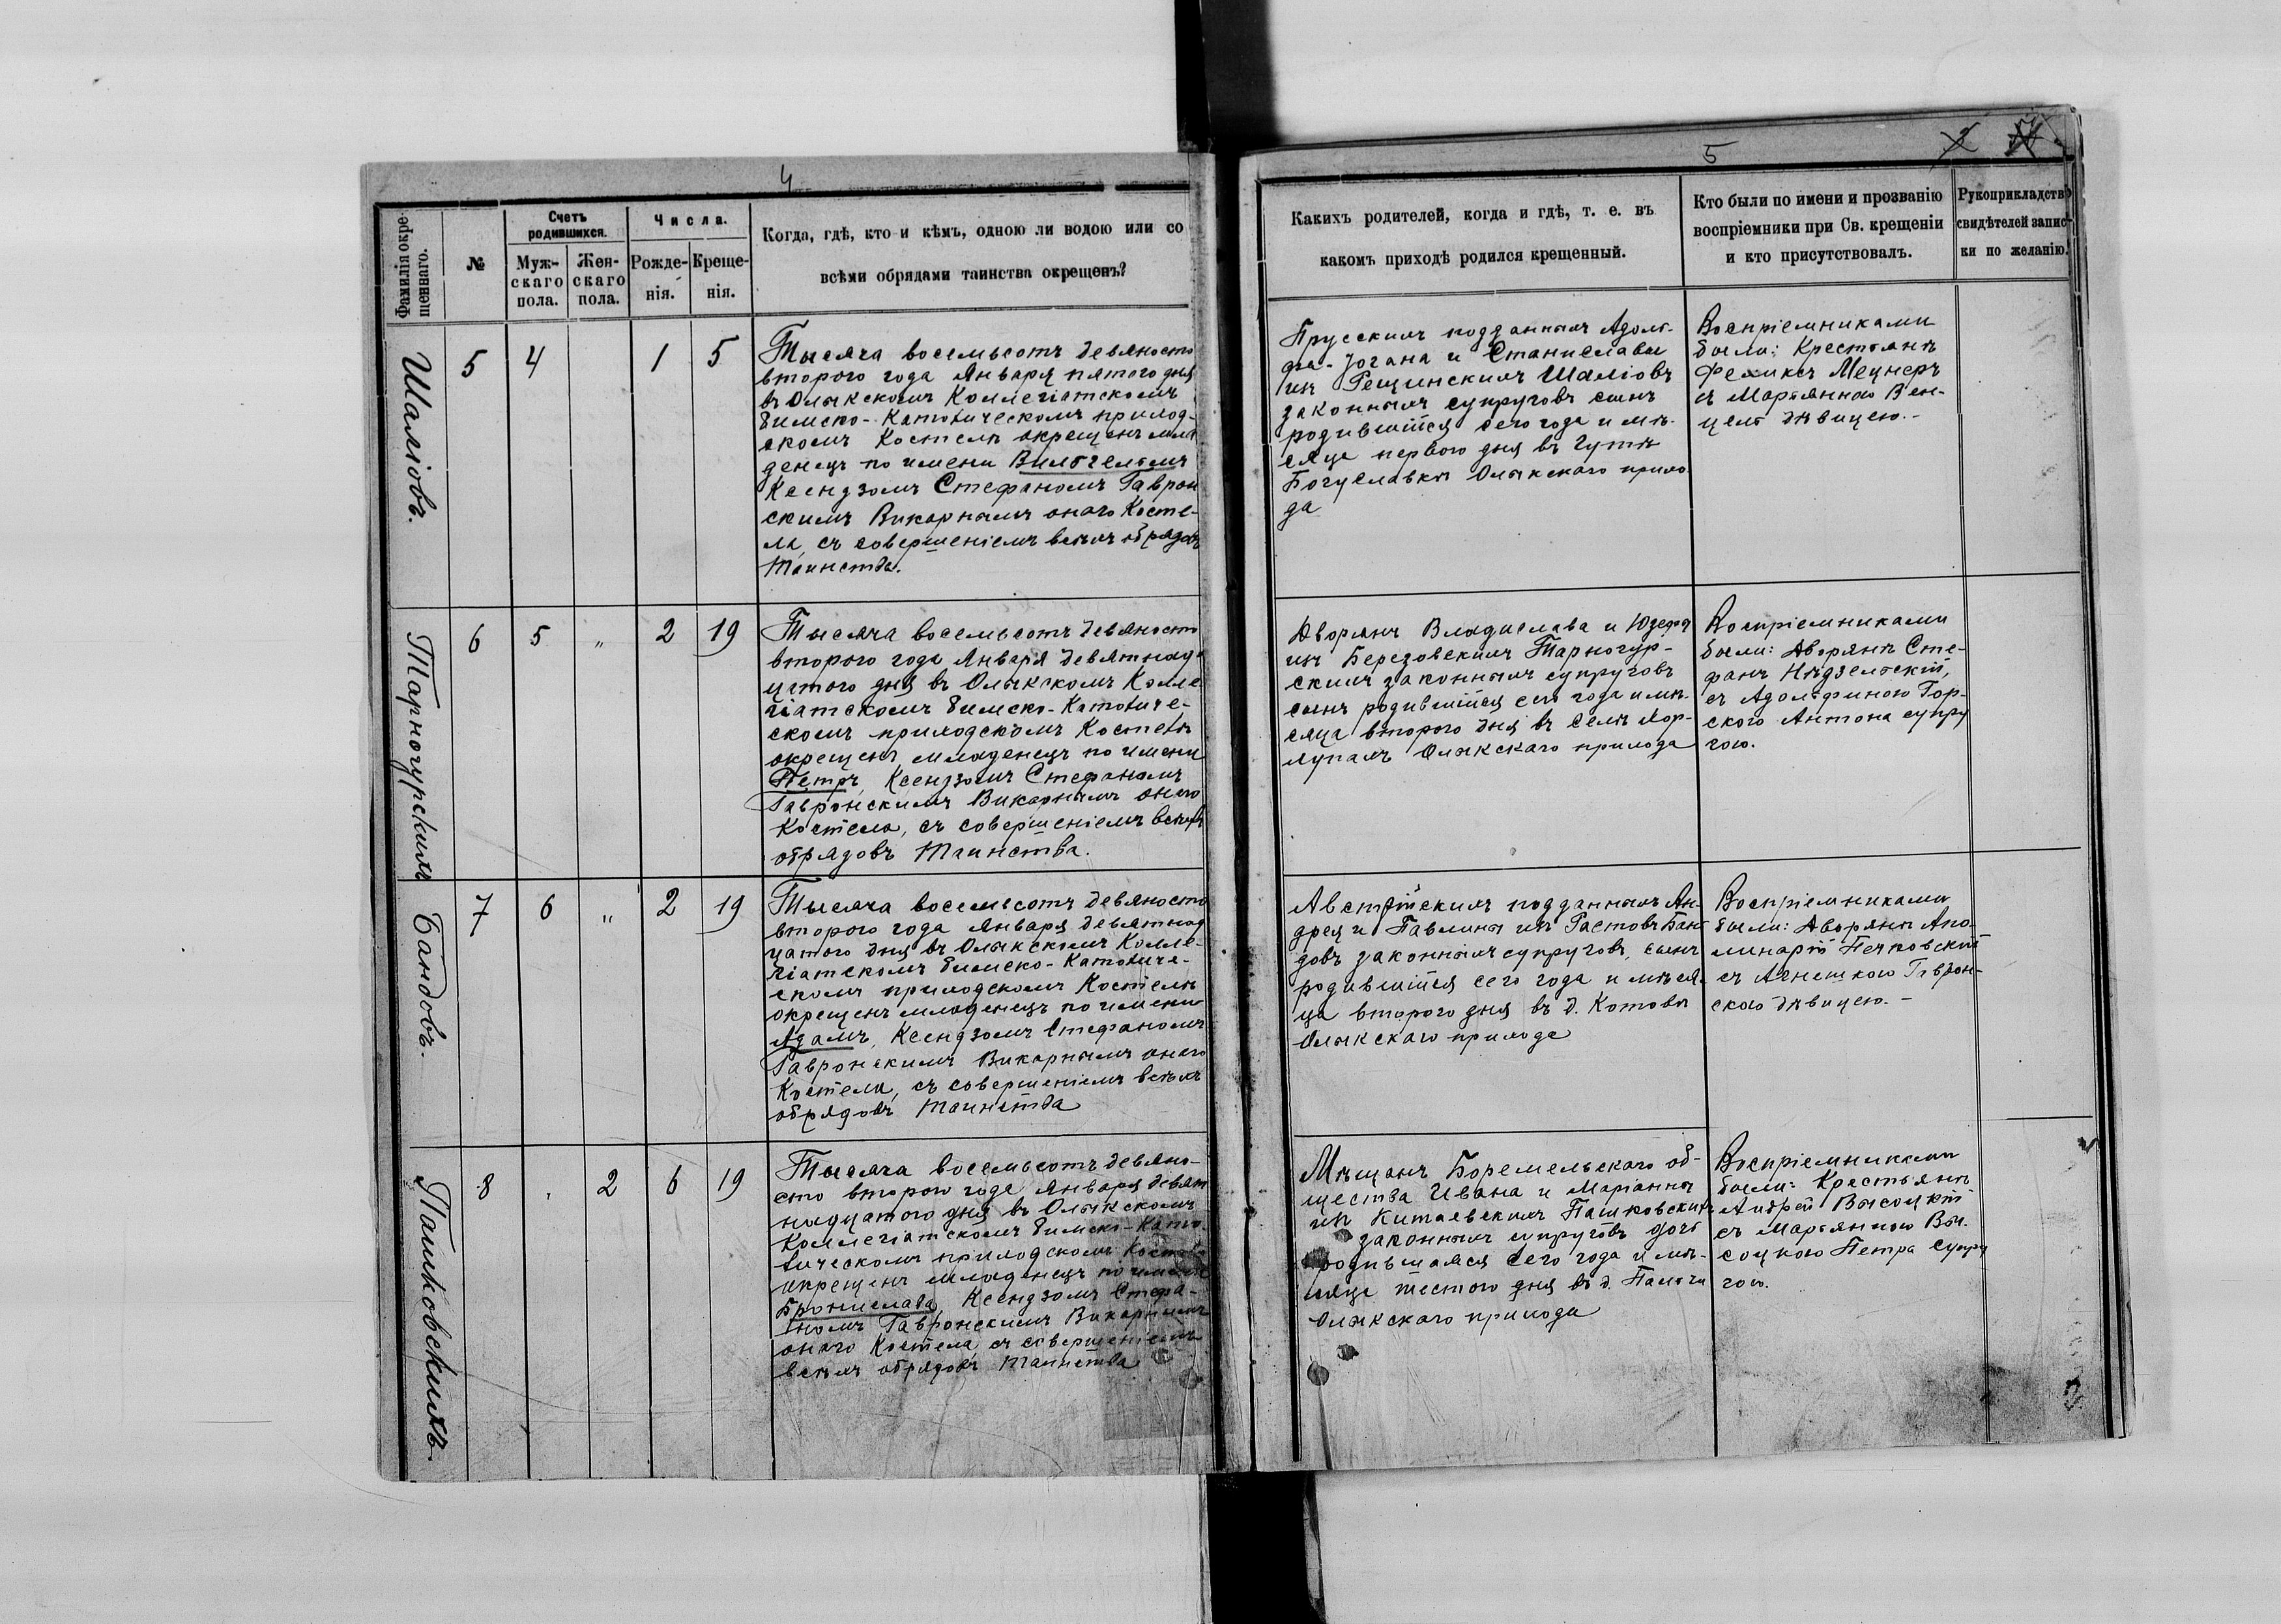 4
Фамилія окре-
щеннаго.
№
Счетъ
родившихся.
Муж-
скаго
пола.
Жен-
скаго
пола.
Числа.
Рожде-
нія.
Креще-
нія.
Когда, гдѣ, кто и кѣмъ, одною ли водою или со
всѣми обрядами таинства окрещенъ?
Шаліовъ.
5 4 1 5
Тысяча восемьсотъ девяносто
второго года Января пятого дня
въ Олыкскомъ Коллегіатскомъ
Римско-Католическомъ приход-
скомъ Костелѣ окрещенъ мла
денецъ по имени Вильгельмъ
Ксендзомъ Стефаномъ Гаврон
скимъ Викарнымъ оного Косте-
ла, съ совершеніемъ всѣхъ обрядовъ
Таинства.
Тарногурскихъ
6 5 „ 2 19
Тысяча восемьсотъ девяносто
второго года Января девятнад-
цатого дня въ Олыкскомъ Колле-
гіатскомъ Римско-Католиче-
скомъ приходскомъ Костелѣ
окрещенъ младенецъ по имени
Петръ, Ксендзомъ Стефаномъ
Гавронскимъ Викарнымъ оного
Костела, съ совершеніемъ всѣхъ
обрядовъ Таинства.
Бандовъ.
7 6 „ 2 19
Тысяча восемьсотъ девяносто
второго года Января девятнад
цатого дня въ Олыкскомъ Колле-
гіатскомъ Римско-Католиче-
скомъ приходскомъ Костелѣ
окрещенъ младенецъ по имени
Адамъ, Ксендзомъ Стефаномъ
Гавронскимъ Викарнымъ оного
Костела, съ совершеніемъ всѣхъ
обрядовъ Таинства
Пашковскихъ
8 „ 2 6 19
Тысяча восемьсотъ девяно-
сто второго года Января девят
надцатого дня въ Олыкскомъ
Коллегіатскомъ Римско-Като-
лическомъ приходскомъ Костелѣ
окрещенъ младенецъ по имени
Брониславa, Ксендзомъ Стефа-
номъ Гавронскимъ Викарнымъ
оного Костела, съ совершеніемъ
всѣхъ обрядовъ Таинства
5
2
Какихъ родителей, когда и гдѣ, т. е. въ
какомъ приходѣ родился крещенный.
Кто были по имени и прозванію
воспріемники при Св. крещеніи
и кто присутствовалъ.
Рукоприкладство
свидѣтелей запис-
ки по желанію.
Прусскихъ подданныхъ Адоль-
фа-Іогана и Станиславы
изъ Рещинскихъ Шаліовъ
законныхъ супруговъ сынъ
родившійся сего года и мѣ-
сяца первого дня въ Гутѣ
Богуславкѣ Олыкского прихо
да
Воспріемниками
были: Крестьянъ
Феликсъ Мецнеръ
съ Марьянною Вен-
цель дѣвицею.-
Дворянъ Владислава и Юзефы
изъ Березовскихъ Тарногур-
скихъ законныхъ супруговъ
сынъ родившійся сего года и мѣ-
сяца второго дня въ селѣ Хор-
лупахъ Олыкскаго прихода
Воспріемниками
были: Дворянъ Сте-
фанъ Нѣдзельскій,
съ Адольфиною Гор-
ского Антона супру
гою.
Австрійскихъ подданныхъ Ан-
дрея и Павлины изъ Гастовъ Бан-
довъ законныхъ супруговъ, сынъ
родившійся сего года и мѣся-
ца второго дня въ д. Котовѣ
Олыкскаго прихода
Воспріемниками
были: Дворянъ Апо-
линарій Печковскій
съ Агнешкою Гаврон-
скою дѣвицею.-
Мѣщанъ Боремельскаго об-
щества Ивана и Маріанны
изъ Китаевскихъ Пашковскихъ
законныхъ супруговъ дочь
родившаяся сего года и мѣ-
сяца шестого дня въ д.
Олыкскаго прихода
Воспріемниками
были: Крестьянъ
Андрей Высоцкій
съ Марьянною Вы-
соцкою Петра супру
гою.